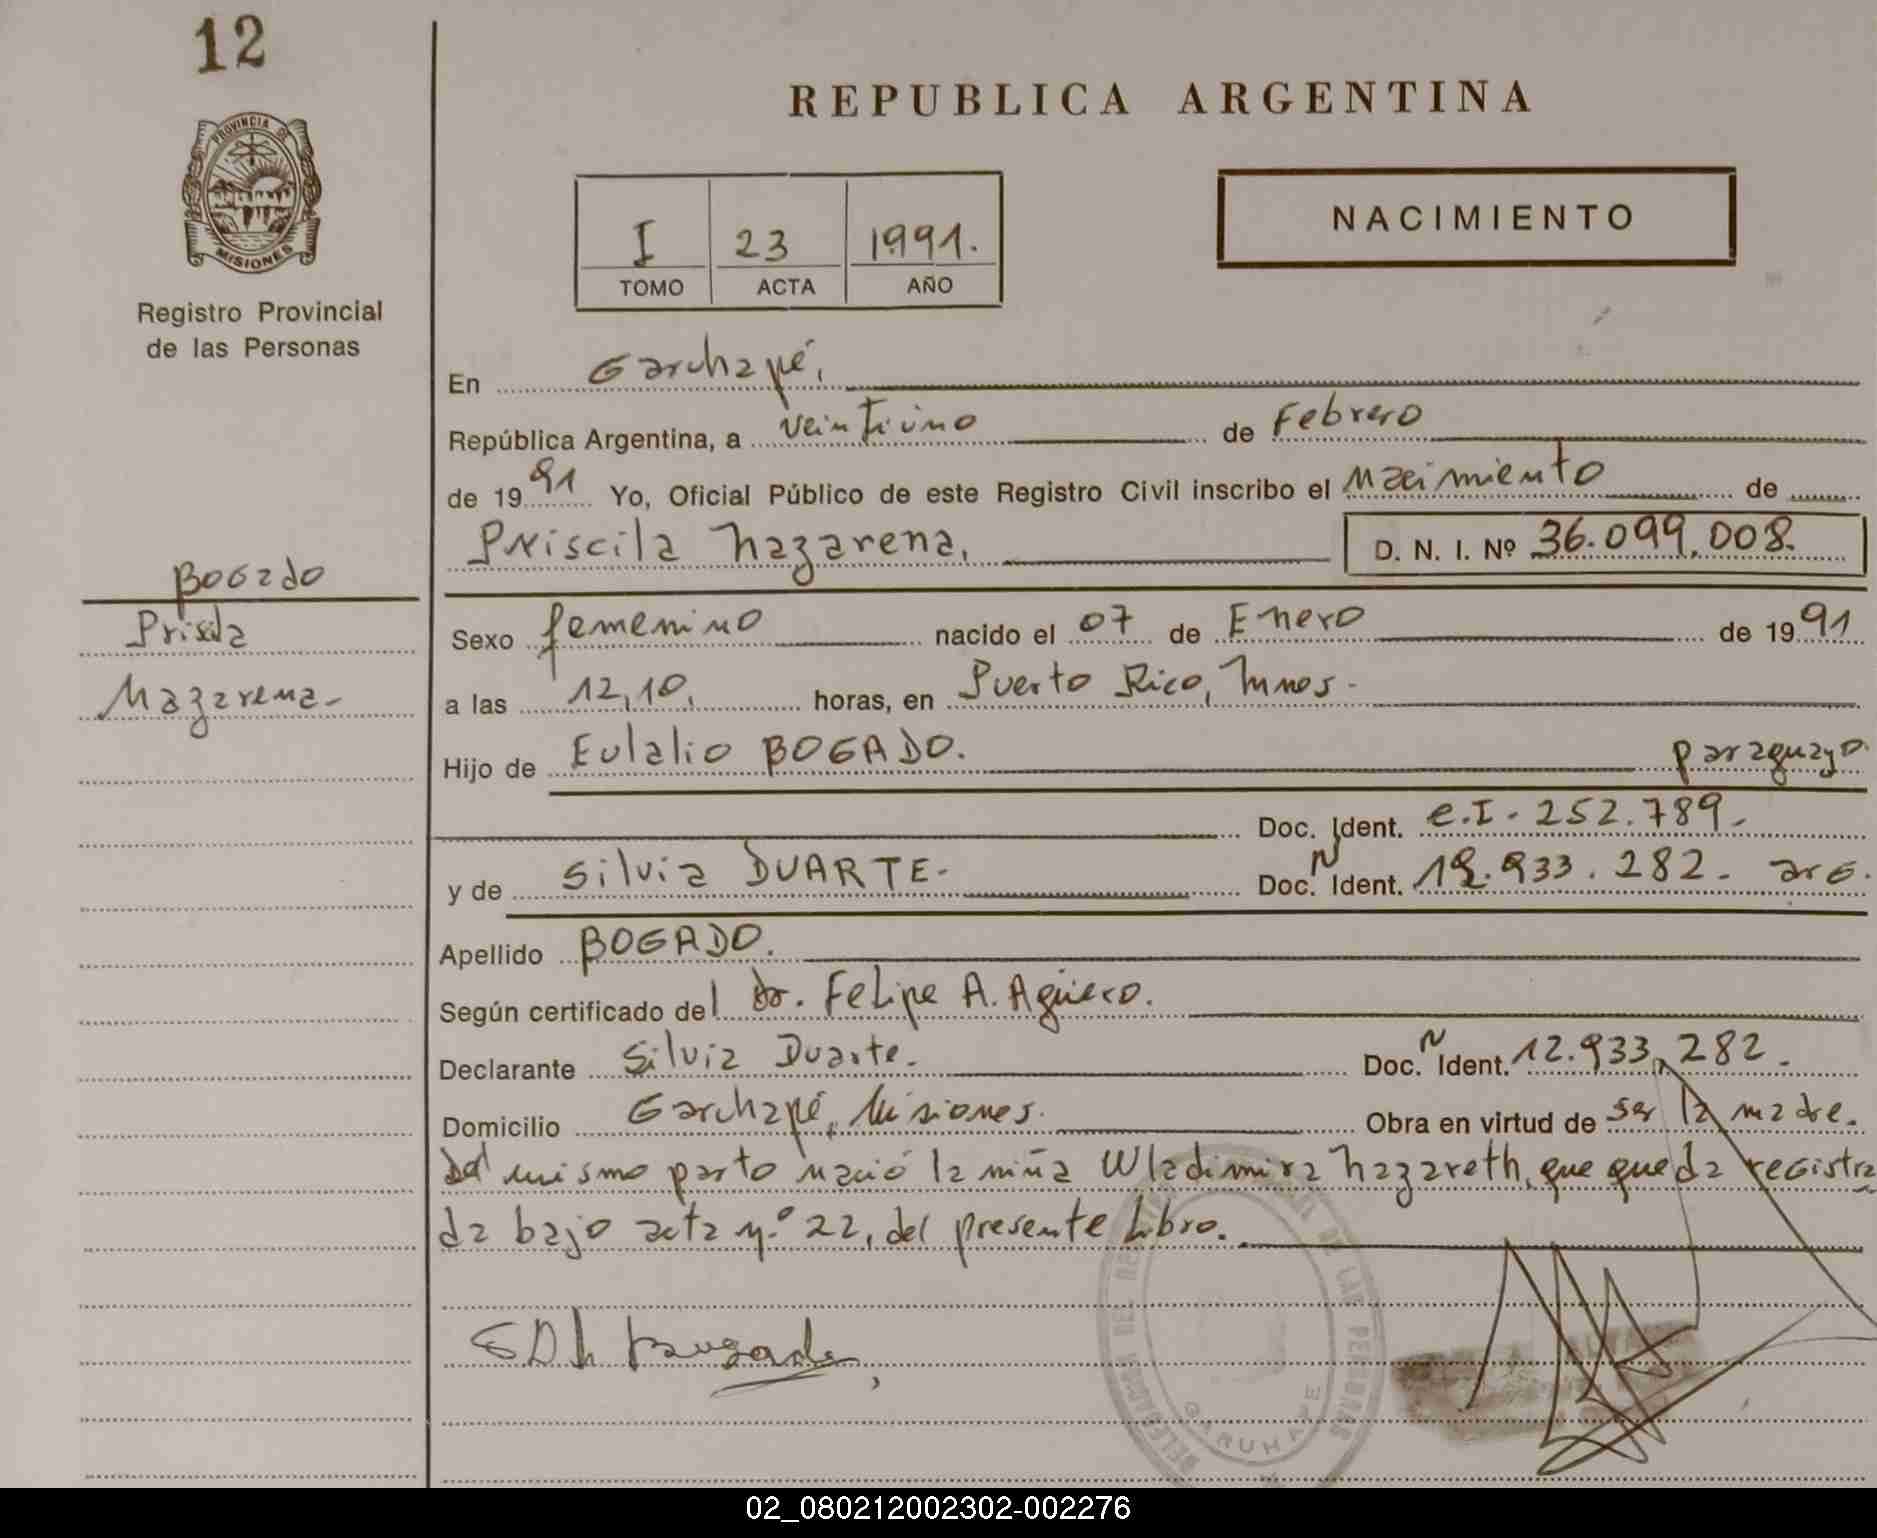 12
REPUBLICA ARGENTINA
PROVINCIA DE
MISIONES
Registro Provincial
de las Personas
I 23 1991.
TOMO ACTA AÑO
NACIMIENTO
En Garuhapé,
República Argentina, a veintiuno de Febrero
de 1991 Yo, Oficial Público de este Registro Civil inscribo el nacimiento de
Priscila Nazarena, D. N. I. Nº 36.099.008.
Bogado
Priscila
Nazarena-
Sexo femenino nacido el 07 de Enero de 1991
a las 12,10, horas, en Puerto Rico, Mnes.
Hijo de Eulalio BOGADO. paraguayo.
Doc. Ident. C.I. 252.789.
y de Silvia DUARTE- Doc. Ident. 12.933.282- arg.
Apellido BOGADO.
Según certificado del Dr. Felipe A. Agüero.
Declarante Silvia Duarte. Doc. Ident. 12.933.282.
Domicilio Garuhapé, Misiones. Obra en virtud de ser la madre.
Del mismo parto nació la niña Wladimira Nazareth, que queda registra
da bajo acta nº 22, del presente Libro.
DELEGACION DEL REGISTRO DE LAS PERSONAS
GARUHAPE
02_080212002302-002276